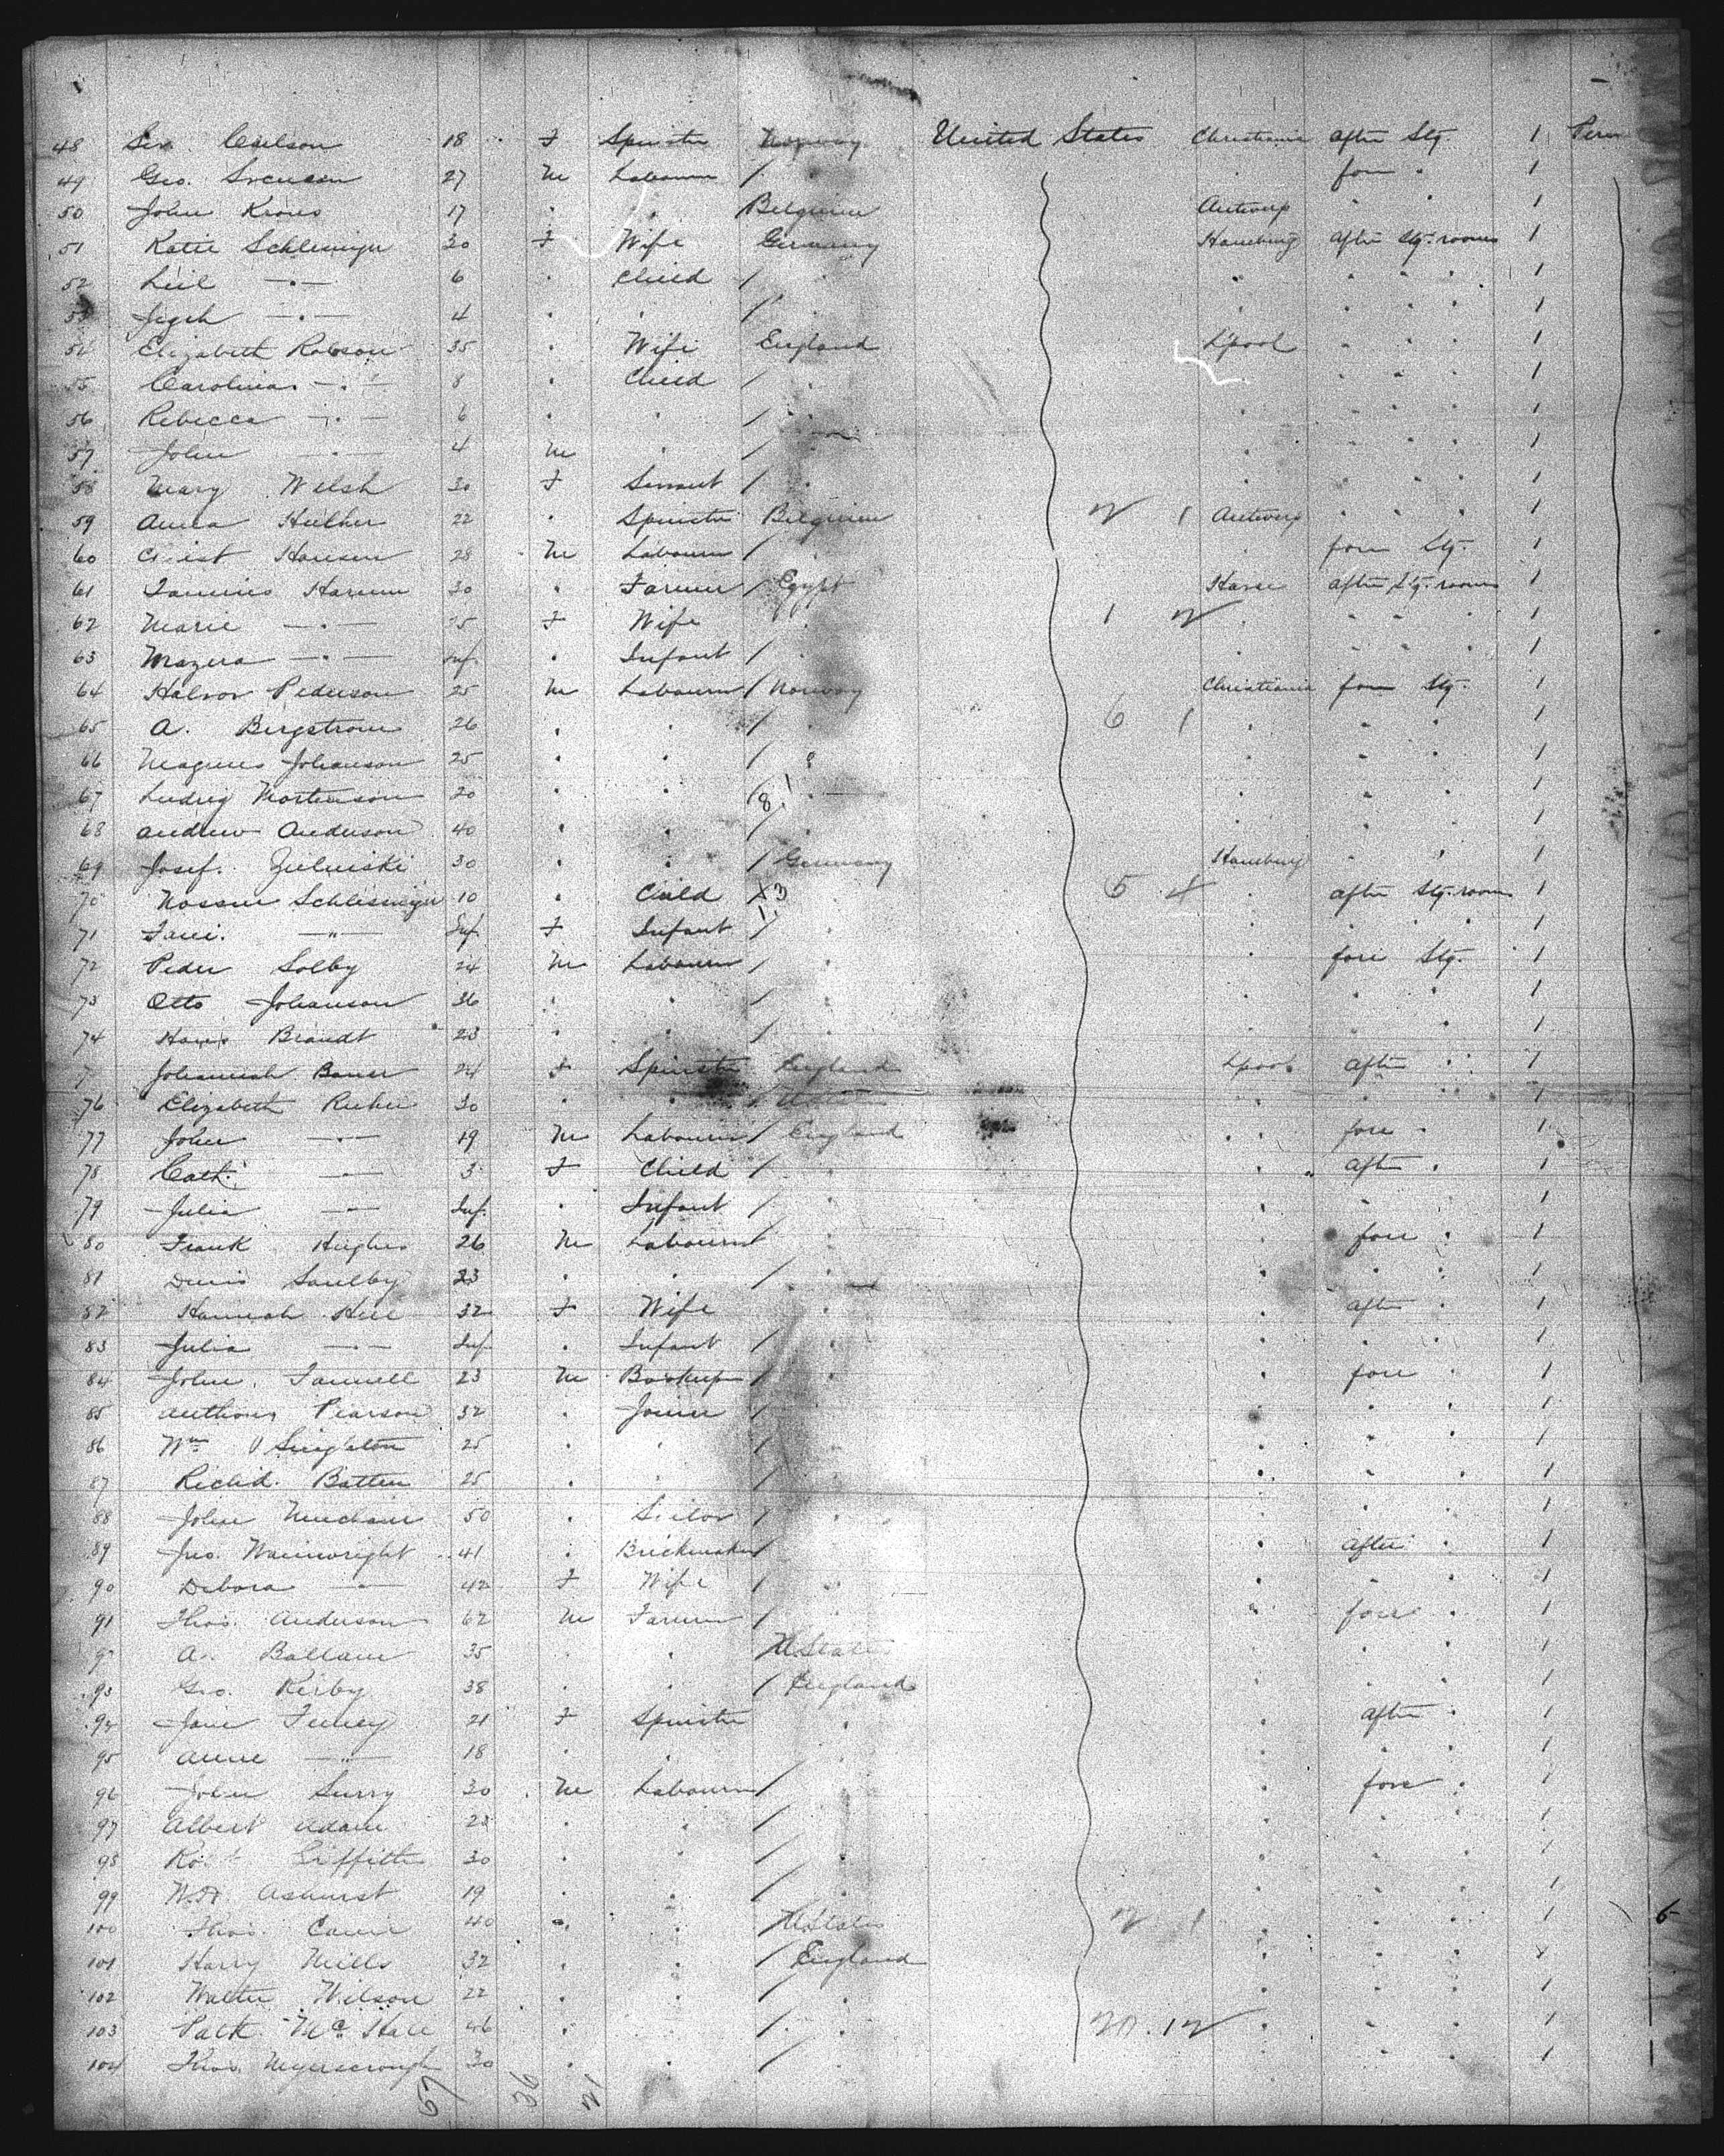 48 Carlson 18 F Spinster Norway United States Christiania After Stg. 1 Perm
49 Geo. Svenson 27 M Labourer / . fore . 1
50 John Krous 17 . . Belgium Antwerp . . 1
51 Katie Schlesinger 30 F Wife Germany Hamburg After Stg. rooms 1
52 —"— 6 . Child / . . . . . 1
53 —"— 4 . . / . . . . . 1
54 Elizabeth Robson 35 . Wife England L'pool . . . 1
55 Carolina —"— 8 . Child / . . . . 1
56 Rebecca —"— 6 . . / . . . . . 1
57 John —"— 4 M . / . . . . . 1
58 Mary Welsh 30 F Servant / . . . . . 1
59 Anna 22 . Spinster Belgium 2 1 Antwerp . . . 1
60 Christ Hansen 28 M Labourer / . . fore Stg. 1
61 30 . Farmer / Egypt Havre after Stg. rooms 1
62 Marie —"— 25 F Wife . 1 2 . . . . 1
63 —"— Inf. . Infant / . . . . . 1
64 Halvor Pederson 25 M Labourer / Norway Christiania fore Stg. 1
65 A. Bergstrom 26 . . / . 6 1 . . . 1
66 Magnus Johanson 25 . . / . . . . 1
67 Ludvig Mortenson 20 . . / 8 1 . . . . 1
68 Andrew Anderson 40 . . / . . . . 1
69 Josef Zielinski 30 . . / Germany Hamburg . . 1
70 Schlesinger 10 . Child X 3 5 4 . after Stg. room 1
71 Fani. —"— Inf. F Infant / . . . . 1
72 Peder Solby 24 M Labourer / . . fore Stg. 1
73 Otto Johanson 36 . . / . . . . 1
74 Hans Brandt 23 . . / . . . . 1
Johannah 24 F Spinster England Lpool After . 1
76 Elizabeth 30 . . / . . . 1
77 John —"— 19 M Labourer / England . fore . 1
78 Cath. —"— 3 F Child / . . after . 1
79 Julia —"— Inf. . Infant / . . . . 1
80 Frank Hughes 26 M Labourer / . . fore . 1
81 Denis 23 . . / . . . . 1
82 Hannah Hill 32 F Wife . . after . 1
83 Julia —"— Inf. . Infant / . . . . 1
84 John 23 M Bookeep / . . fore . 1
85 Anthony Pearson 32 . Joiner / . . . . 1
86 Wm Singleton 25 . . / . . . . 1
87 Richd. Batten 25 . . / . . . . 1
88 John 50 . Sailor / . . . . 1
89 Jno. Wainwright 41 . Brickmaker / . . After . 1
90 Debora —"— 42 F Wife / . . . . 1
91 Thos. Anderson 62 M Farmer / . . fore . 1
A. Ballam 35 . . U States . . . 1
93 Geo. Kirby 38 . . / England . . . 1
94 Jane 21 F Spinster . . after . 1
95 Anne —"— 18 . . . . . . 1
96 John 30 M Labourer / . . fore . 1
97 Albert Adam 23 . . / . . . . 1
98 Robt Griffith 30 . . / . . . . 1
99 W.H. Ashurst 19 . . / . . . . 1
100 Thos. 40 . . U States 2 1 . . . 1 6
101 Harry Mills 32 . . / England . . . 1
102 Walter Wilson 22 . . / . . . . 1
103 Patk. Mc Hale 46 . . / . 20 . 12 . . . 1
104 Thos. 30 . . / . . . . 1
57 36 21